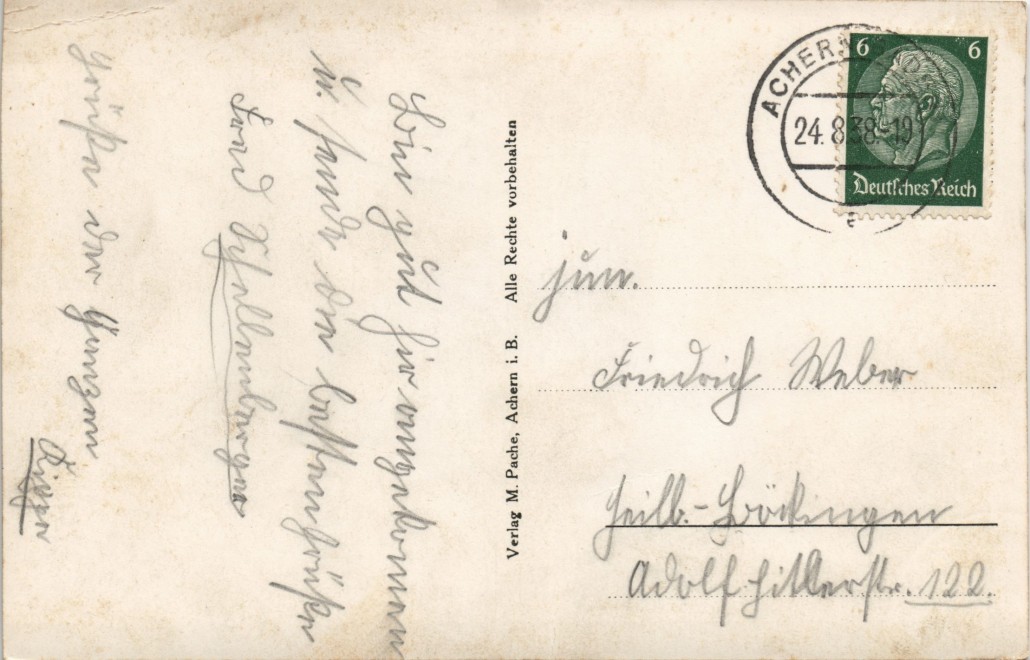 Bin gut hier angekommen
u. sende die besten Grüße
Fred Schellenberger
Grüße der
Verlag M. Pache, Achern i. B. Alle Rechte vorbehalten
ACHERN
24.8.38.-19
6 6
Deutsches Reich
jun.
Friedrich Weber
Heilb.-Böckingen
Adolf Hitlerstr. 122.